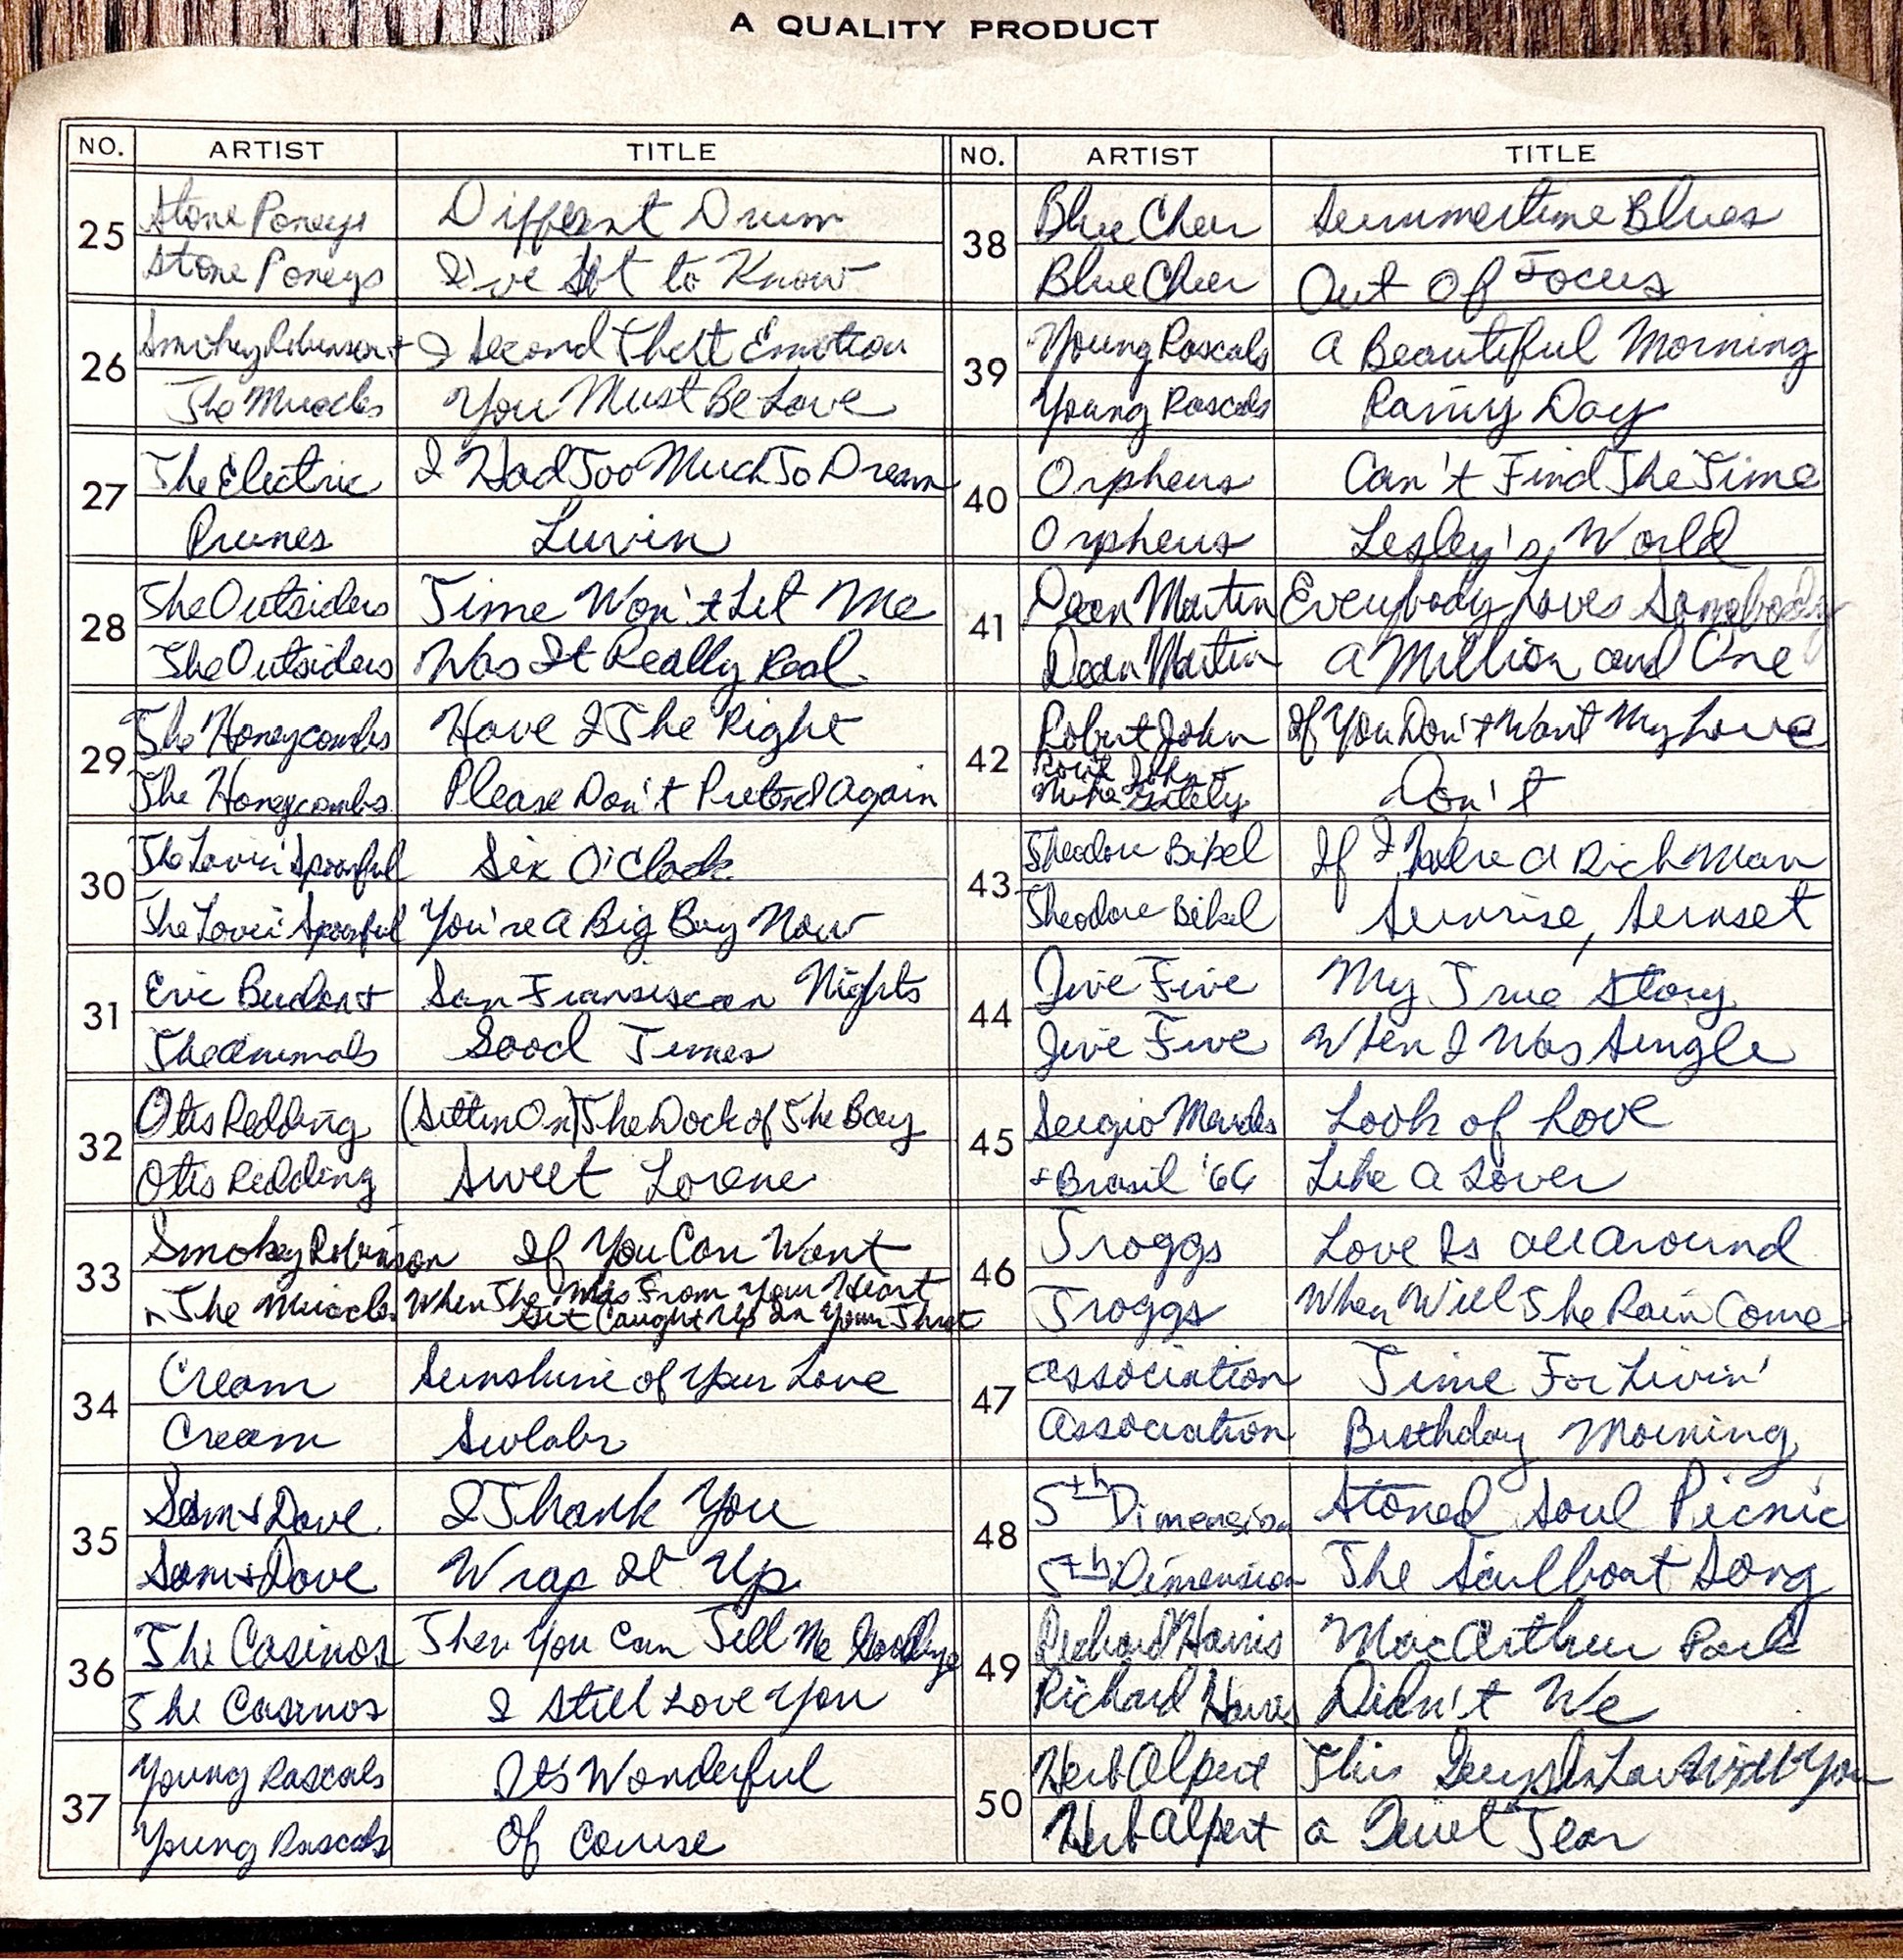 A QUALITY PRODUCT
NO. ARTIST TITLE
25 Stone Poneys Different Drum
Stone Poneys I've Got to Know
26 Smokey Robinson + I Second That Emotion
The Miracles You Must Be Love
27 The Electric I Had Too Much To Dream
Prunes Luvin
28 The Outsiders Time Won't Let Me
The Outsiders Was It Really Real
29 The Honeycombs Have I The Right
The Honeycombs Please Don't Pretend Again
30 The Lovin' Spoonful Six O'Clock
The Lovin' Spoonful You're A Big Boy Now
31 Eric Burdon + San Fransiscan Nights
The Animals Good Times
32 Otis Redding (Sittin On) The Dock of The Bay
Otis Redding Sweet Lorene
33 Smokey Robinson If You Can Want
The Miracles When The Words From Your Heart
Get Caught Up In Your Throat
34 Cream Sunshine of Your Love
Cream Swlabr
35 Sam + Dave I Thank You
Sam + Dave Wrap It Up
36 The Casinos Then You Can Tell Me Goodbye
The Casinos I Still Love You
37 Young Rascals It's Wonderful
Young Rascals Of Course
NO. ARTIST TITLE
38 Blue Cheer Summertime Blues
Blue Cheer Out Of Focus
39 Young Rascals A Beautiful Morning
Young Rascals Rainy Day
40 Orpheus Can't Find The Time
Orpheus Lesley's World
41 Dean Martin Everybody Loves Somebody
Dean Martin A Million and One
42 Robert John If You Don't Want My Love
John +
Don't
43 Theodore Bikel If I Were A Rich Man
Theodore Bikel Sunrise, Sunset
44 Jive Five My True Story
Jive Five When I Was Single
45 Sergio Mendes Look of Love
+ Brasil '66 Like A Lover
46 Troggs Love Is All Around
Troggs When Will The Rain Come
47 Association Time For Livin'
Association Birthday Morning
48 5th Dimension Stoned Soul Picnic
5th Dimension The Sailboat Song
49 Richard Harris MacArthur Park
Richard Harris Didn't We
50 Herb Alpert This Guy's In Love With You
Herb Alpert A Quiet Tear